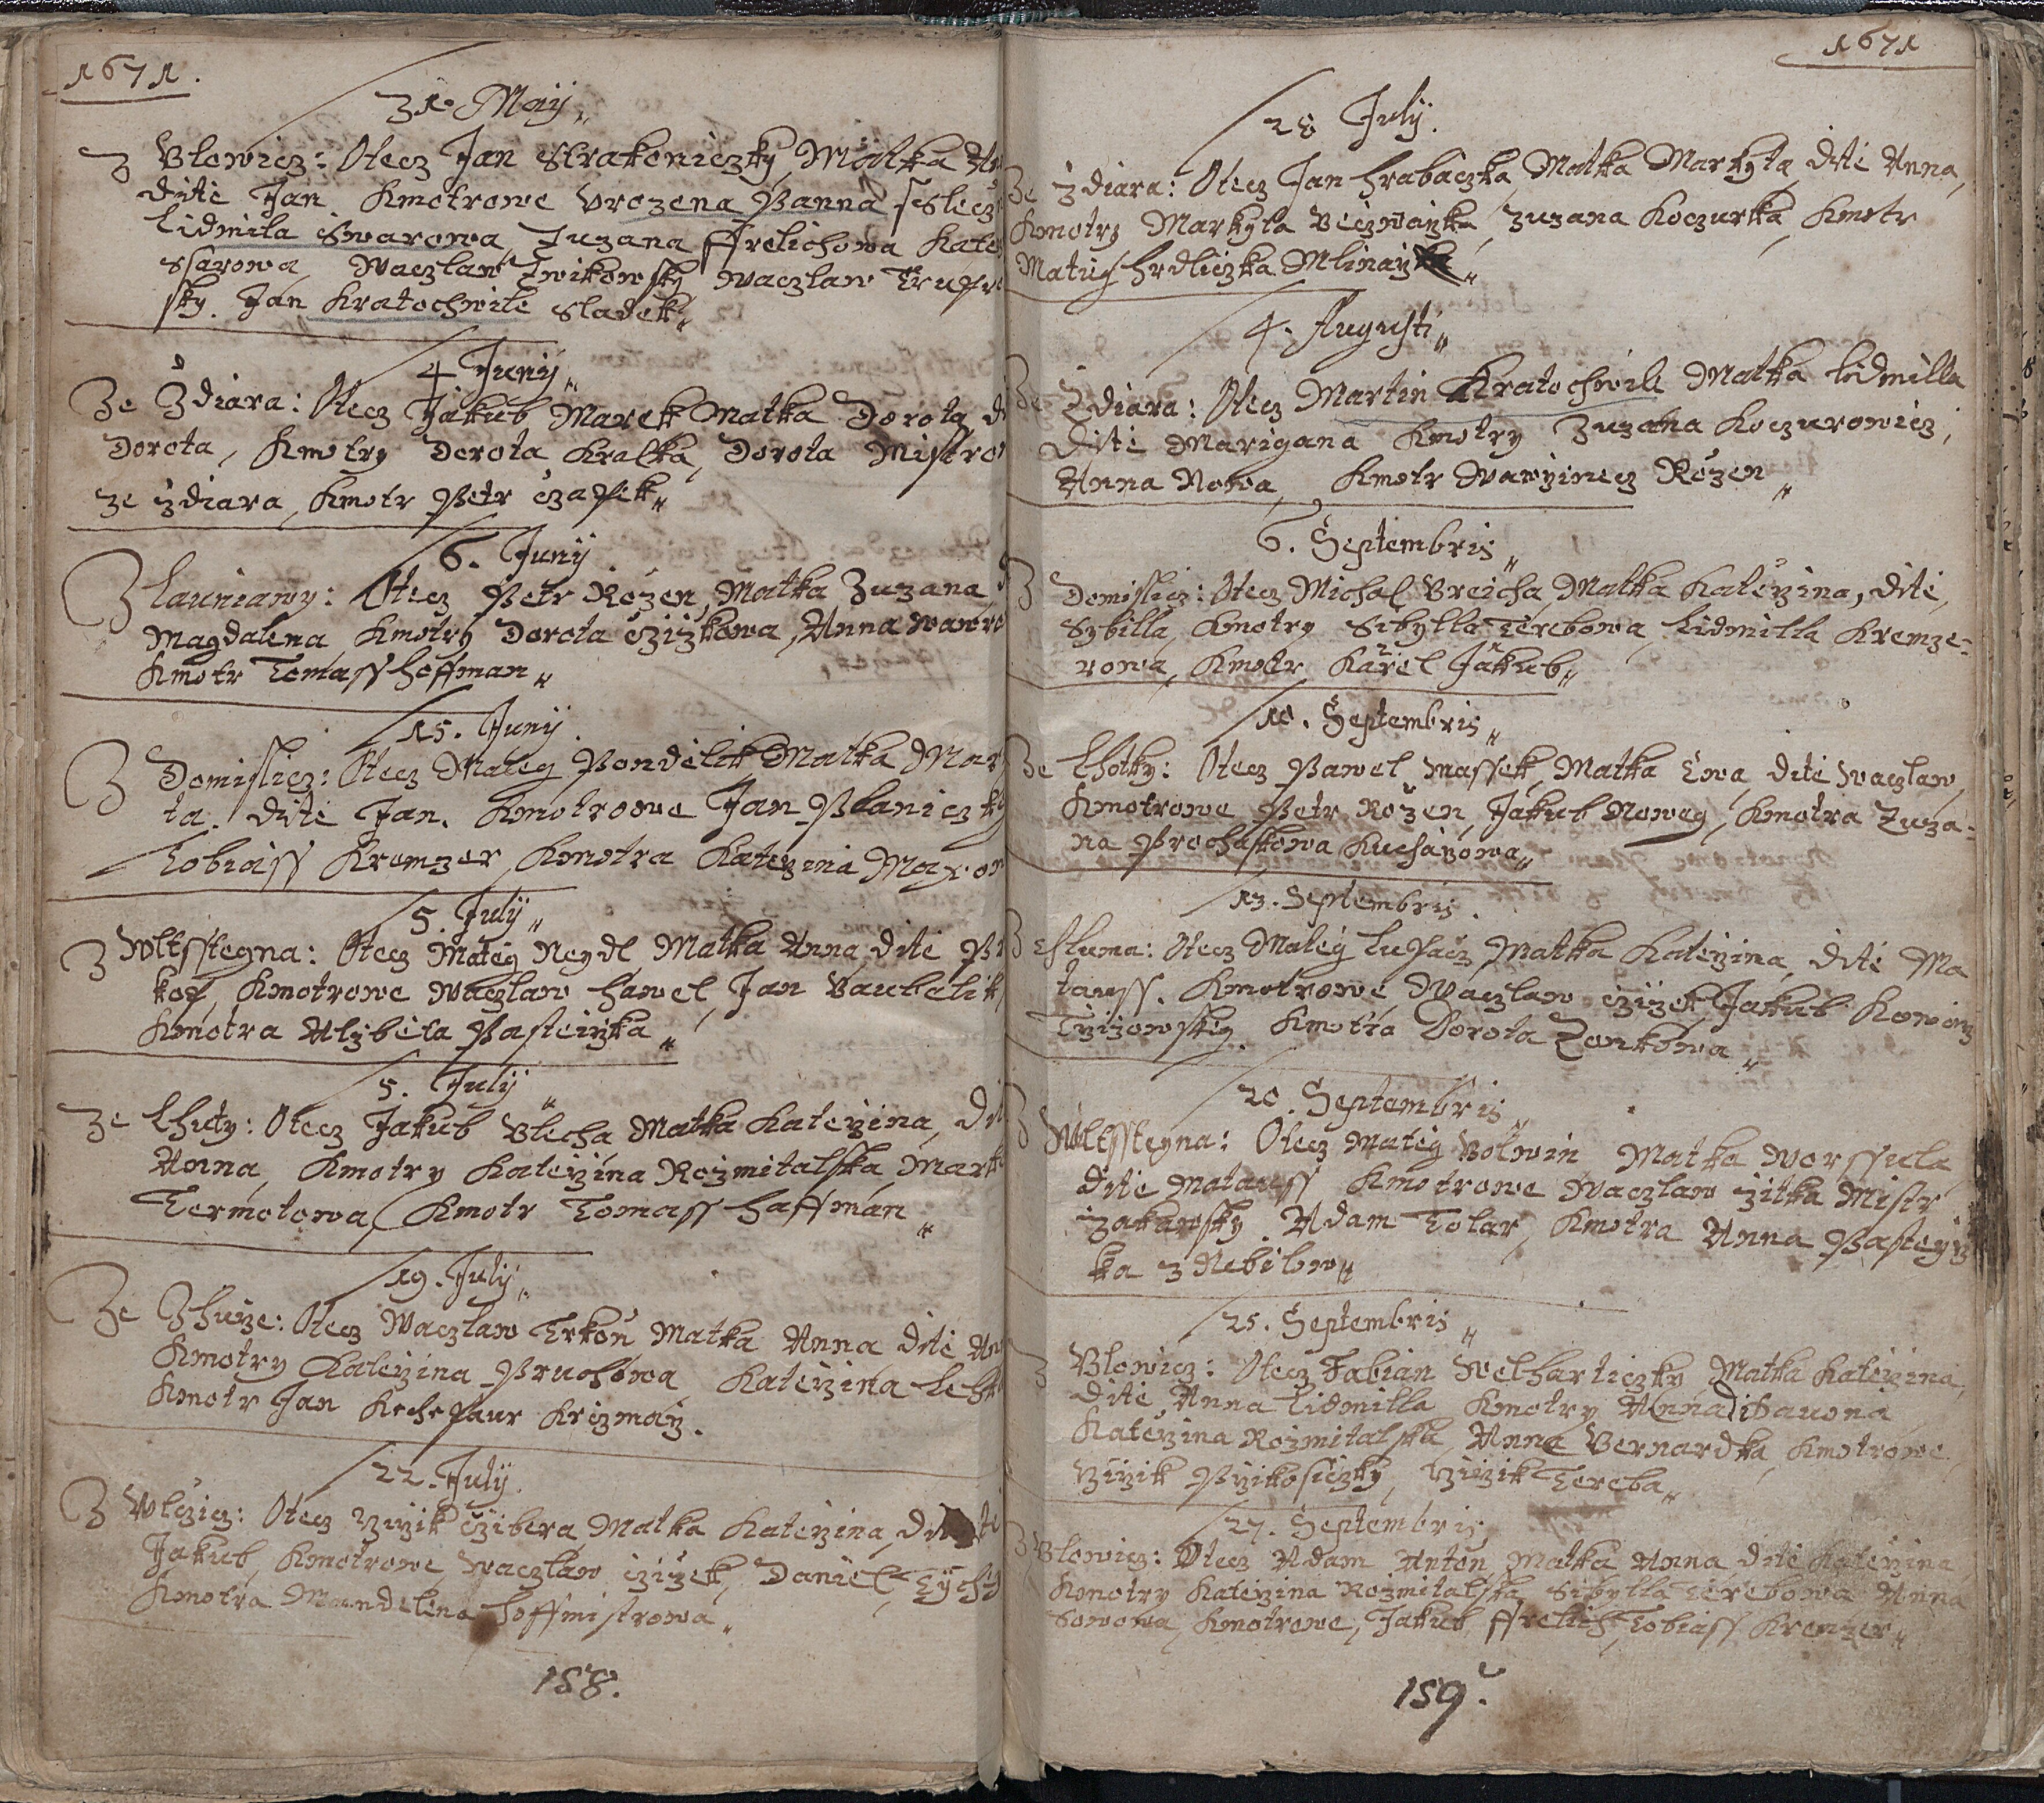 1671.
31. Maij
Z Blowicz: Otecz Jan Strakoniczky, Matka An
dite Jan Kmotrowe Vrozena Panna Slecz
Lidmila Swarowa, Zuzana Frelichowa Kate
Waczlaw Zwikowsky Waczlaw
sky. Jan Kratochwile Sladek
4 Junij
Ze Zdiara: Otecz Jakub Marek Matka Dorota, di
Dorota, Kmotry Dorota Kralka, Dorota Mistro
ze zdiara, Kmotr Petr Czapek
6. Junij
Z Launiawy: Otecz Petr Rozen, Matka Zuzana,
Magdalena, Kmotry Dorota Cziżkowa, Anna Wawro
Kmotr Tomass Hoffman
15. Junij
Z Domislicz: Otecz Mateg Pondelik Matka Mar
ta. dite Jan. Kmotrowe Jan Planiczky
Tobiass Kremzer, Kmotra Katerzina
5. July
Z Wltsstegna: Otecz Mateg Neydl Matka Anna, dite Pr
kop, Kmotrowe Waczlaw Hawel, Jan Vaubelik
Kmotra Alzbeta Pasteirzka
5. July
Ze Lhuty: Otecz Jakub Vlecha Matka Katerzina, Di
Anna, Kmotry Katerzina Rozmitalska, Mark
Termotowa, Kmotr Tomass Haffman
19. July
Ze Zhurze: Otecz Waczlaw Trkon Matka Anna dite An
Kmotry Katerzina Pruchowa, Katerzina
Kmotr Jan
22. July.
Z Wlczicz: Otecz Girzik Czibera, Matka Katerzina, di
Jakub, Kmotrowe Waczlaw Czizek, Daniel
Kmotra Mandelina Hoffmistrowa
158.
1671
28 July.
Ze Zdiara: Otecz Jan Hrabaczka, Matka Markyta, dite Anna,
Kmotry Markyta Zuzana Koczurka, Kmotr
Matus Hrdliczka Mlinarz
4. Augusti
Ze Zdiara: Otecz Martin Kratochwile Matka Lidmilla
Dite Marigana Kmotry Zuzana Koczurowicz,
Anna Nowa, Kmotr Wawrzinecz Rozen
6. Septembris
Z Domislicz: Otecz Michal Vreicha, Matka Katerzina, Dite,
Sybilla, Kmotry Sibylla Terebowa, Lidmilla Kremze=
rowa, Kmotr Karel Jakub
10. Septembris
Ze Lhotky: Otecz Pawel Wassek, Matka Ewa, Dite Waczlaw
Kmotrowe Petr Rozen, Jakub Noweg, Kmotra Zuza=
na Prochaskowa Kucharzowa
13. Septembris.
Z Chluma: Otecz Mateg Matka Katerzina, Dite Ma
tauss. Kmotrowe Waczlaw Czizek, Jakub
Kmotra Dorota Zonkowa
20. Septembris
Z Wltsstegna: Otecz Mateg Votwin Matka Worssula
dite Matauss Kmotrowe Waczlaw Zitka Mistr
zakawsky. Adam Tolar, Kmotra Anna Pasteyrz
ka z Nebilow
25. Septembris
Z Blowicz: Otecz Fabian Welharticzky, Matka Katerzina,
dite Anna Lidmilla Kmotry Anna
Katerzina Rozmitalska, Anna Bernardka, Kmotrowe
Girzik Przikosiczky, Girzik Tereba
27. Septembris
Z Blowicz: Otecz Adam Anton, Matka Anna, dite Katerzina
Kmotry Katerzina Rozmitalska, Sibylla Terebowa Anna
Kmotrowe, Jakub Frelich, Tobiass Kremzer
159.